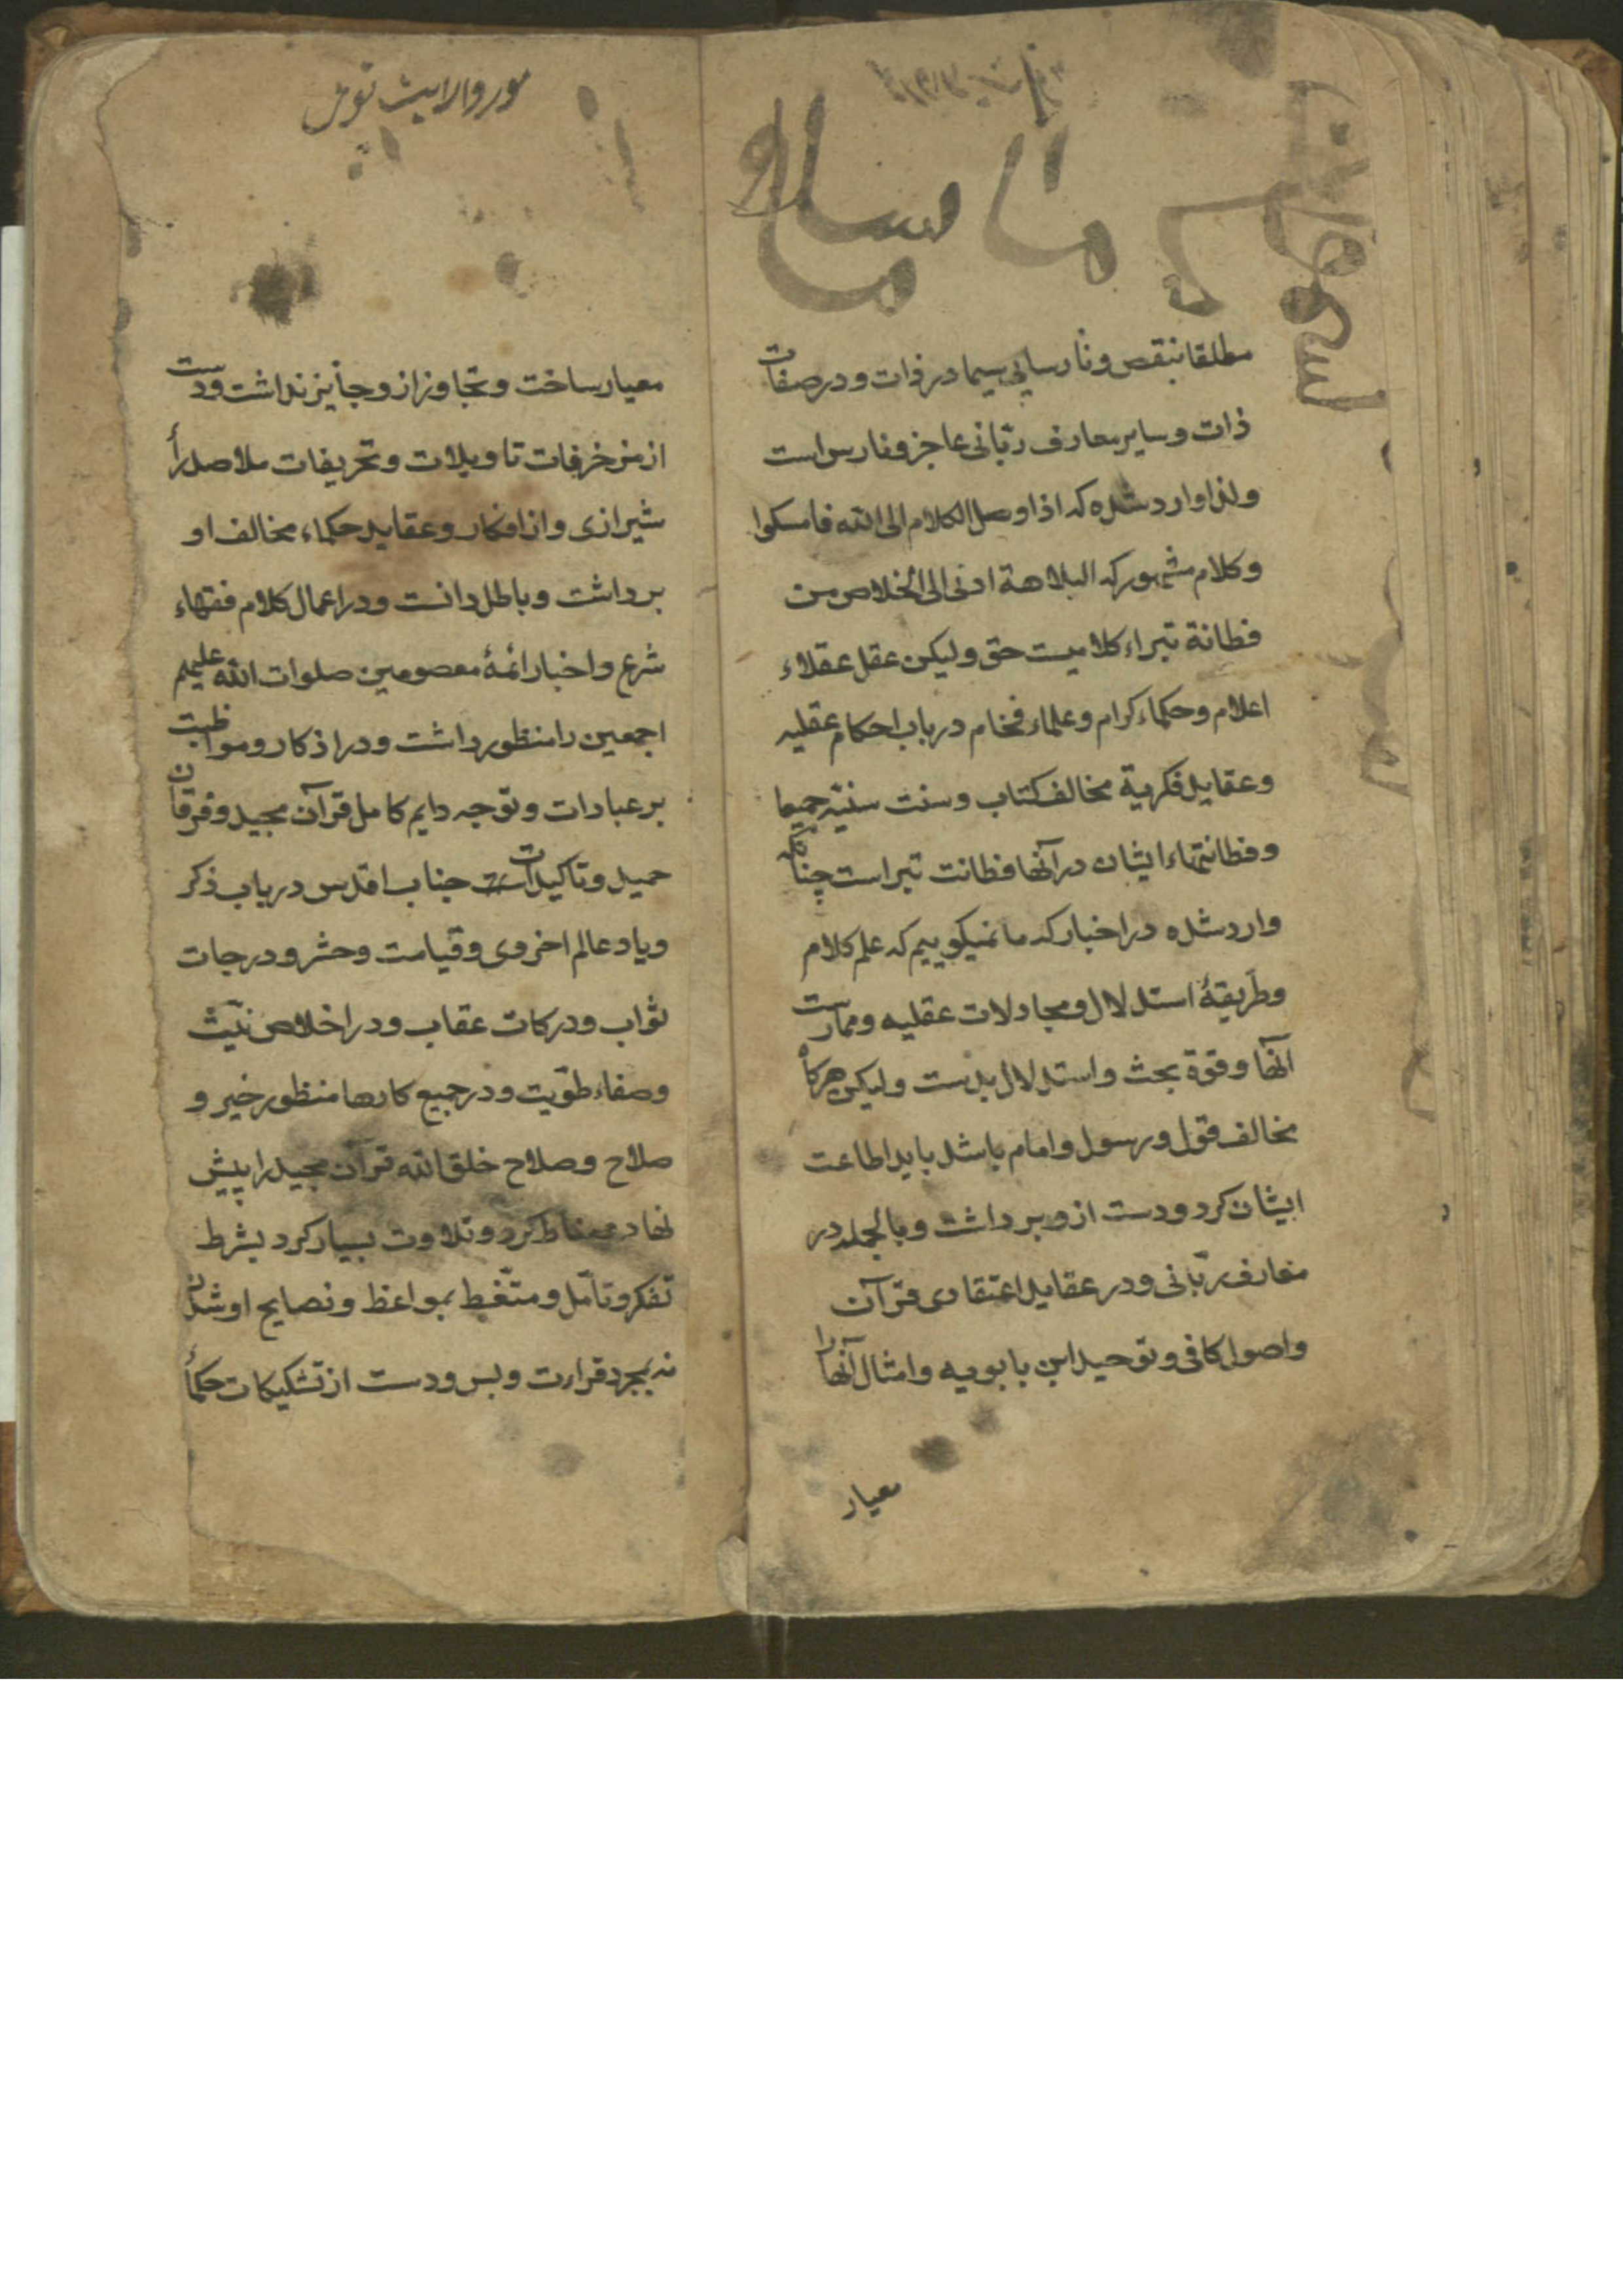 مطلقا بنقص و نارسایی سیما در ذات و در صفات
ذات و سایر معارف ربّانی عاجز و نارس است
و لذا وارد شده که اذا وصل الکلام الی الله فامسکوا
و کلام مشهور که البلاهة ادنی الی الخلاص من
فطانة تبراء کلامیست حق و لیکن عقل عقلاء
اعلام و حکماء کرام و علماء فخام در باب احکام عقلیه
و عقاید فکریة مخالف کتاب و سنت سنیّه جمیعا
و فطانتهاء ایشان در آنها فطانت تبراست چنانکه
وارد شده در اخبار که ما نمیکوییم که علم کلام
و طریقهٔ استدلال و مجادلات عقلیه و ممارست
آنها و قوة بحث و استدلال بدست و لیکن هرکاه
مخالف قول و رسول و امام باشد باید اطاعت
ایشان کرد و دست ازو برداشت و بالجمله در
معارف ربّانی و در عقاید اعتقادی قرآن
و اصول کافی و توحید ابن بابویه و امثال آنها را
معیار
معیار ساخت و تجاوز ازو جایز نداشت و دست
از مزخرفات تاویلات و تحریفات ملا صدرا
شیرازی و از افکار و عقاید حکماء مخالف او
برداشت و باطل دانست و در اعمال کلام فقهاء
شرع و اخبار ائمهٔ معصومین صلوات الله علیهم
اجمعین را منظور داشت و در اذکار و مواظبت
بر عبادات و توجه دایم کامل قرآن مجید و فرقان
حمید و تاکیدات جناب اقدس در باب ذکر
و یاد عالم اخروی و قیامت و حشر و درجات
ثواب و درکات عقاب و در اخلاص نیّت
و صفاء طویّت و در جمیع کارها منظور خیر و
صلاح و صلاح خلق الله قرآن مجید را پیش
نهاد کرد و تلاوت بسیار کرد بشرط
تفکر و تأمّل و متّغط بمواعظ و نصایح او شدن
نه بمجرد قراءت و بس و دست از تشکیکات حکماء